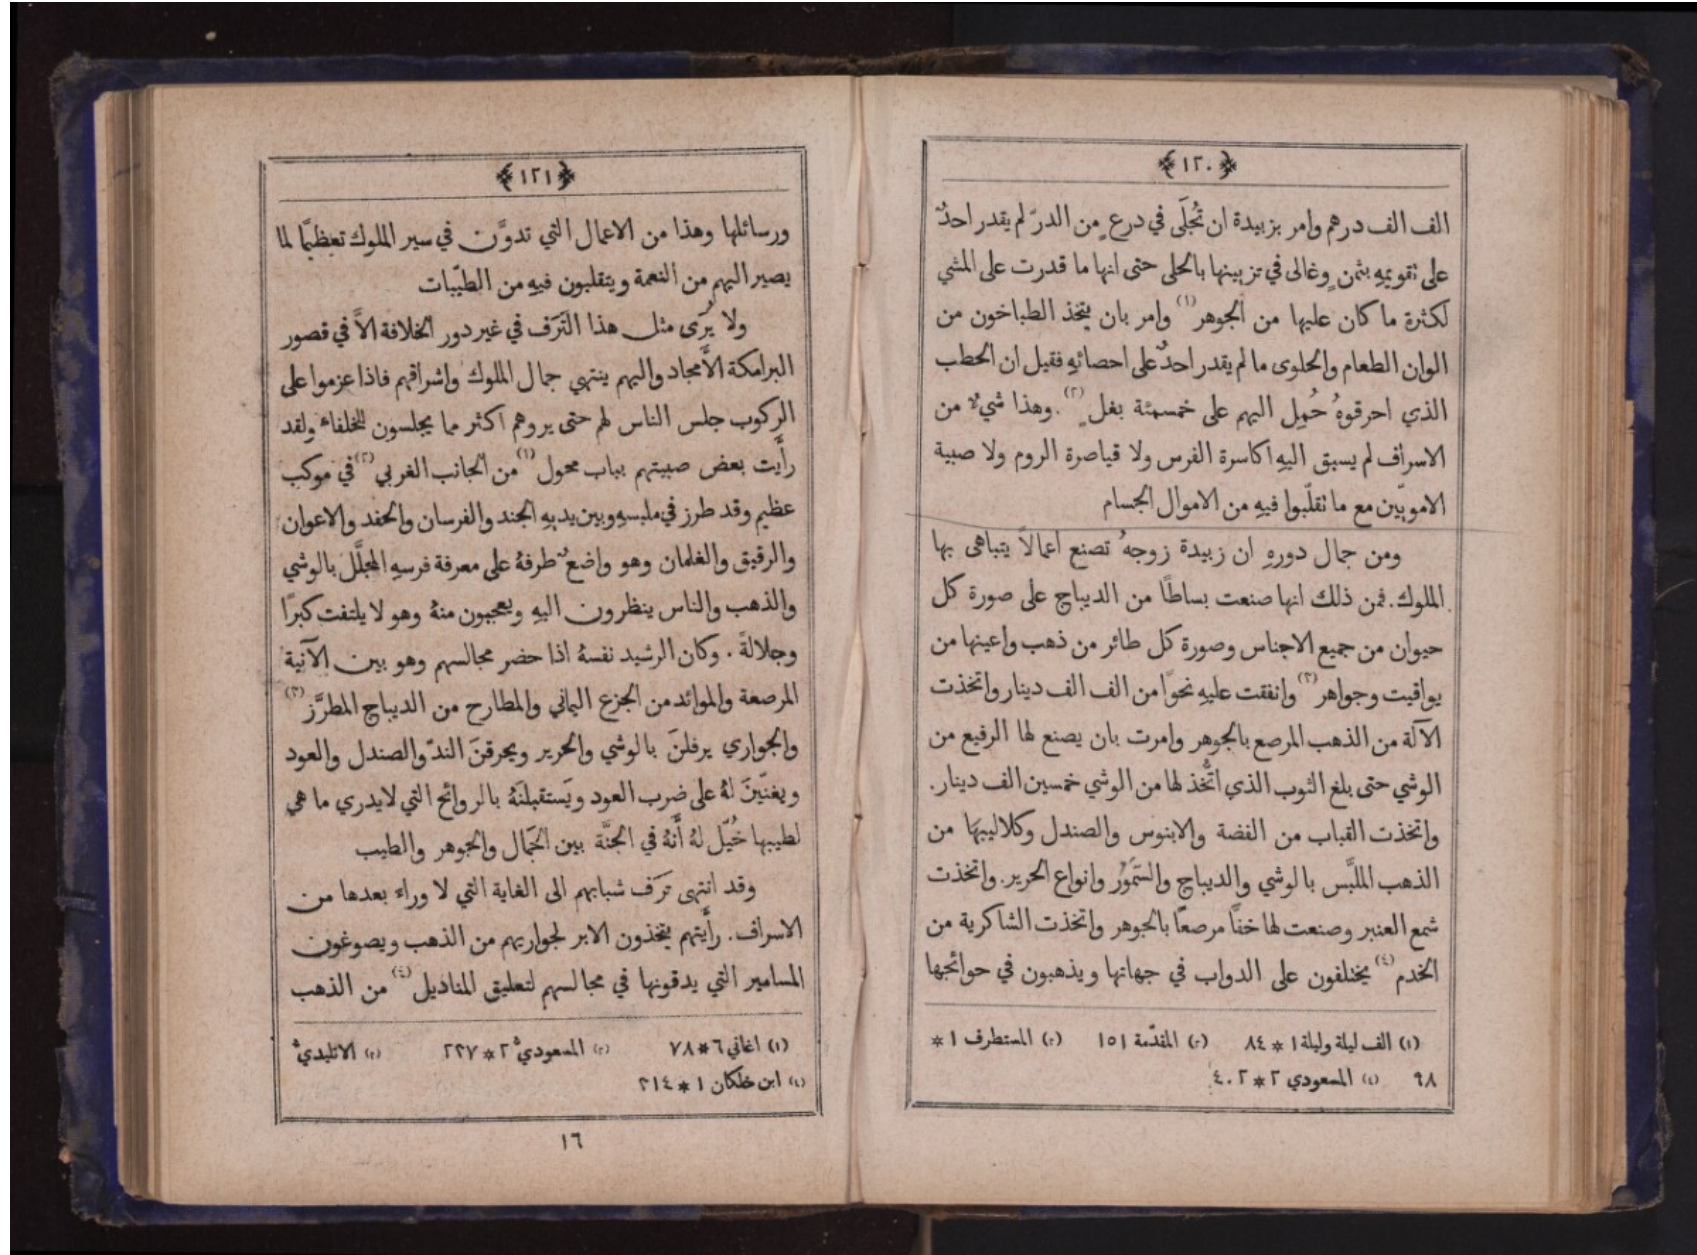 ﴿١٢٠﴾
الف الف درهم وامر بزبيدة ان تُجلَى في درعٍ من الدرّ لم يقدر احدٌ
على تقويمهِ بثمنٍ وغالى في تزيينها بالحلى حتى انها ما قدرت على المشي
لكثرة ما كان عليها من الجوهر (١) وامر بان يتخذ الطباخون من
الوان الطعام والحلوى ما لم يقدر احدٌ على احصائهِ فقيل ان الحطب
الذي احرقوهُ حُمِل اليهم على خمسمئة بغلٍ (٢). وهذا شيءٌ من
الاسراف لم يسبق اليهِ اكاسرة الفرس ولا قياصرة الروم ولا صبية
الامويّين مع ما تقلّبوا فيهِ من الاموال الجسام
ومن جمال دورهِ ان زبيدة زوجهُ تصنع اعمالاً يتباهى بها
الملوك. فمن ذلك انها صنعت بساطًا من الديباج على صورة كل
حيوان من جميع الاجناس وصورة كل طائر من ذهب واعينها من
يواقيت وجواهر (٣) وانفقت عليهِ نحوًا من الف الف دينار واتخذت
الآلة من الذهب المرصع بالجوهر وامرت بان يصنع لها الرفيع من
الوشي حتى بلغ الثوب الذي اتُّخذ لها من الوشي خمسين الف دينار.
واتخذت القباب من الفضة والابنوس والصندل وكلاليبهَا من
الذهب الملَّبس بالوشي والديباج والسَّمّوْر وانواع الحرير. واتخذت
شمع العنبر وصنعت لها خفًّا مرصعًا بالجوهر واتخذت الشاكرية من
الخدم (٤) يختلفون على الدواب في جهاتها ويذهبون في حوائجها
(١) الف ليلة وليلة ١ * ٨٤ (٢) المقدّمة ١٥١ (٣) المستطرف ١ *
٩٨ (٤) المسعودي ٢ * ٤٠٢
﴿١٢١﴾
ورسائلها وهذا من الاعمال التي تدوَّن في سير الملوك تعظيمًا لما
يصير اليهم من النعمة ويتقلبون فيهِ من الطيّبات
ولا يُرَى مثل هذا التَرَف في غير دور الخلافة الاَّ في قصور
البرامكة الأَمجاد واليهم ينتهي جمال الملوك واشراقهم فاذا عزموا على
الركوب جلس الناس لهم حتى يروهم اكثر مما يجلسون للخلفاء ولقد
رأَيت بعض صبيتهم بباب محول (١) من الجانب الغربي (٢) في موكب
عظيم وقد طرز في ملبسهِ وبين يديهِ الجند والفرسان والحفد والاعوان
والرقيق والغلمان وهو واضعٌ طرفهُ على معرفة فرسهِ المجلَّل بالوشي
والذهب والناس ينظرون اليهِ ويعجبون منهُ وهو لا يلتفت كبرًا
وجلالةً. وكان الرشيد نفسهُ اذا حضر مجالسهم وهو بين الآنية
المرصعة والموائد من الجزع اليماني والمطارح من الديباج المطرَّز (٣)
والجواري يرفلنَ بالوشي والحرير ويحرقنَ الندّ والصندل والعود
ويغنّينَ لهُ على ضرب العود ويَستقبلنَهُ بالروائح التي لا يدري ما هي
لطيبها خُيّل لهُ أَنهُ في الجنَّة بين الجَمال والجوهر والطيب
وقد انتهى تَرَف شبابهم الى الغاية التي لا وراء بعدها من
الاسراف. رأَيتهم يتخذون الابر لجواريهم من الذهب ويصوغون
المسامير التي يدقونها في مجالسهم لتعليق المناديل (٤) من الذهب
(١) اغاني ٦ * ٧٨ (٢) المسعودي ٢ * ٢٢٧ (٣) الاتليدي
(٤) ابن خلكان ١ * ٢١٤
١٦